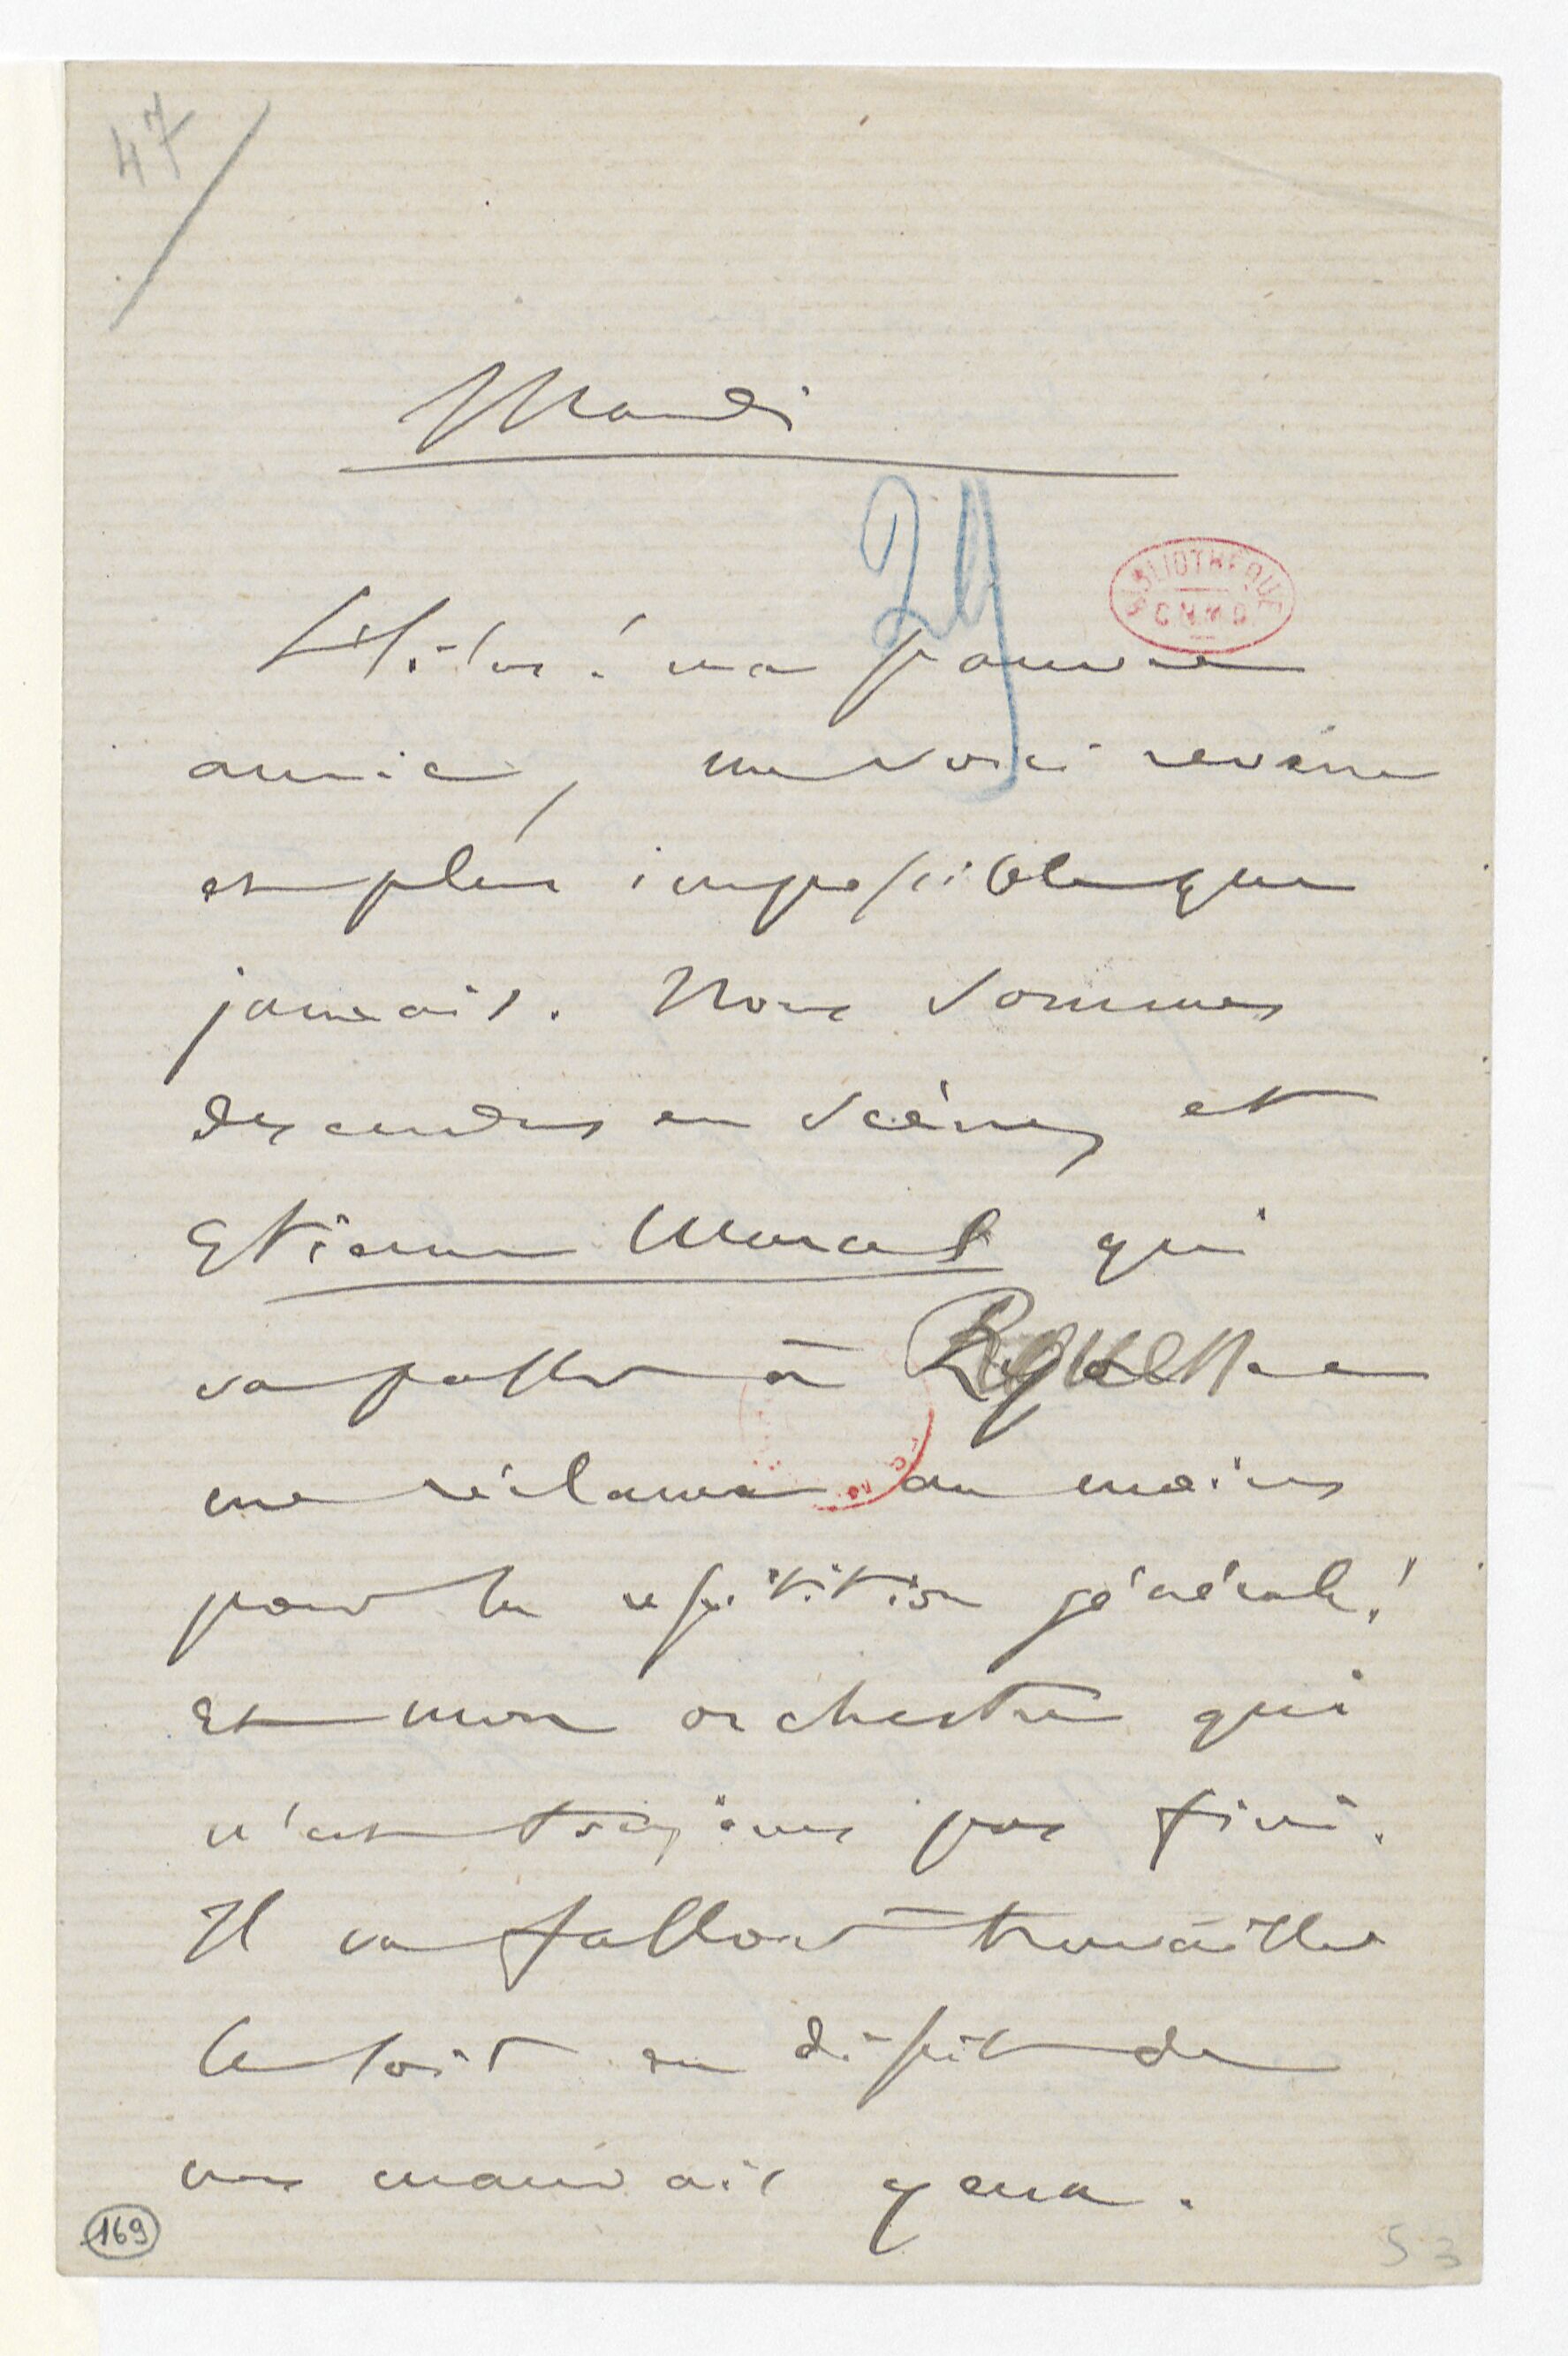 47
Mardi
29
BIBLIOTHEQUE
CNMD
Hélas! ma pauvre
amie, me voici revenu
et plus impossible que
jamais. Nous sommes
descendus en scène, et
Etienne Marcel qui
va passer à
me réclame au moins
pour la répétition générale!
et mon orchestre qui
n'est toujours pas fini.
Il va falloir travailler
le soir en dépit de
mes mauvais yeux.
169
53